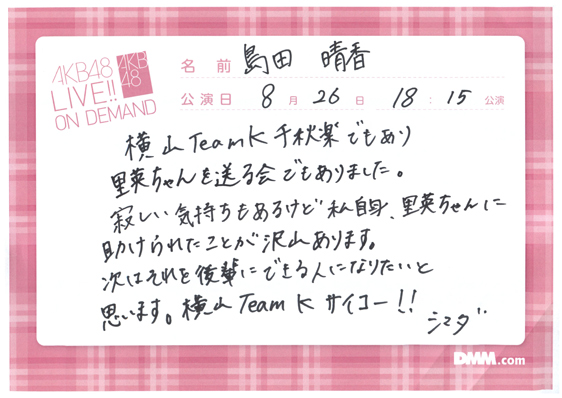 AKB48
LIVE!!
ON DEMAND
AKB
48
名前 島田 晴香
公演日 8月26日 18:15公演
横山TeamK千秋楽でもあり
里英ちゃんを送る会でもありました。
寂しい気持ちもあるけど私自身、里英ちゃんに
助けられたことが沢山あります。
次はそれを後輩にできる人になりたいと
思います。横山TeamKサイコー!!
シマダ
DMM.com